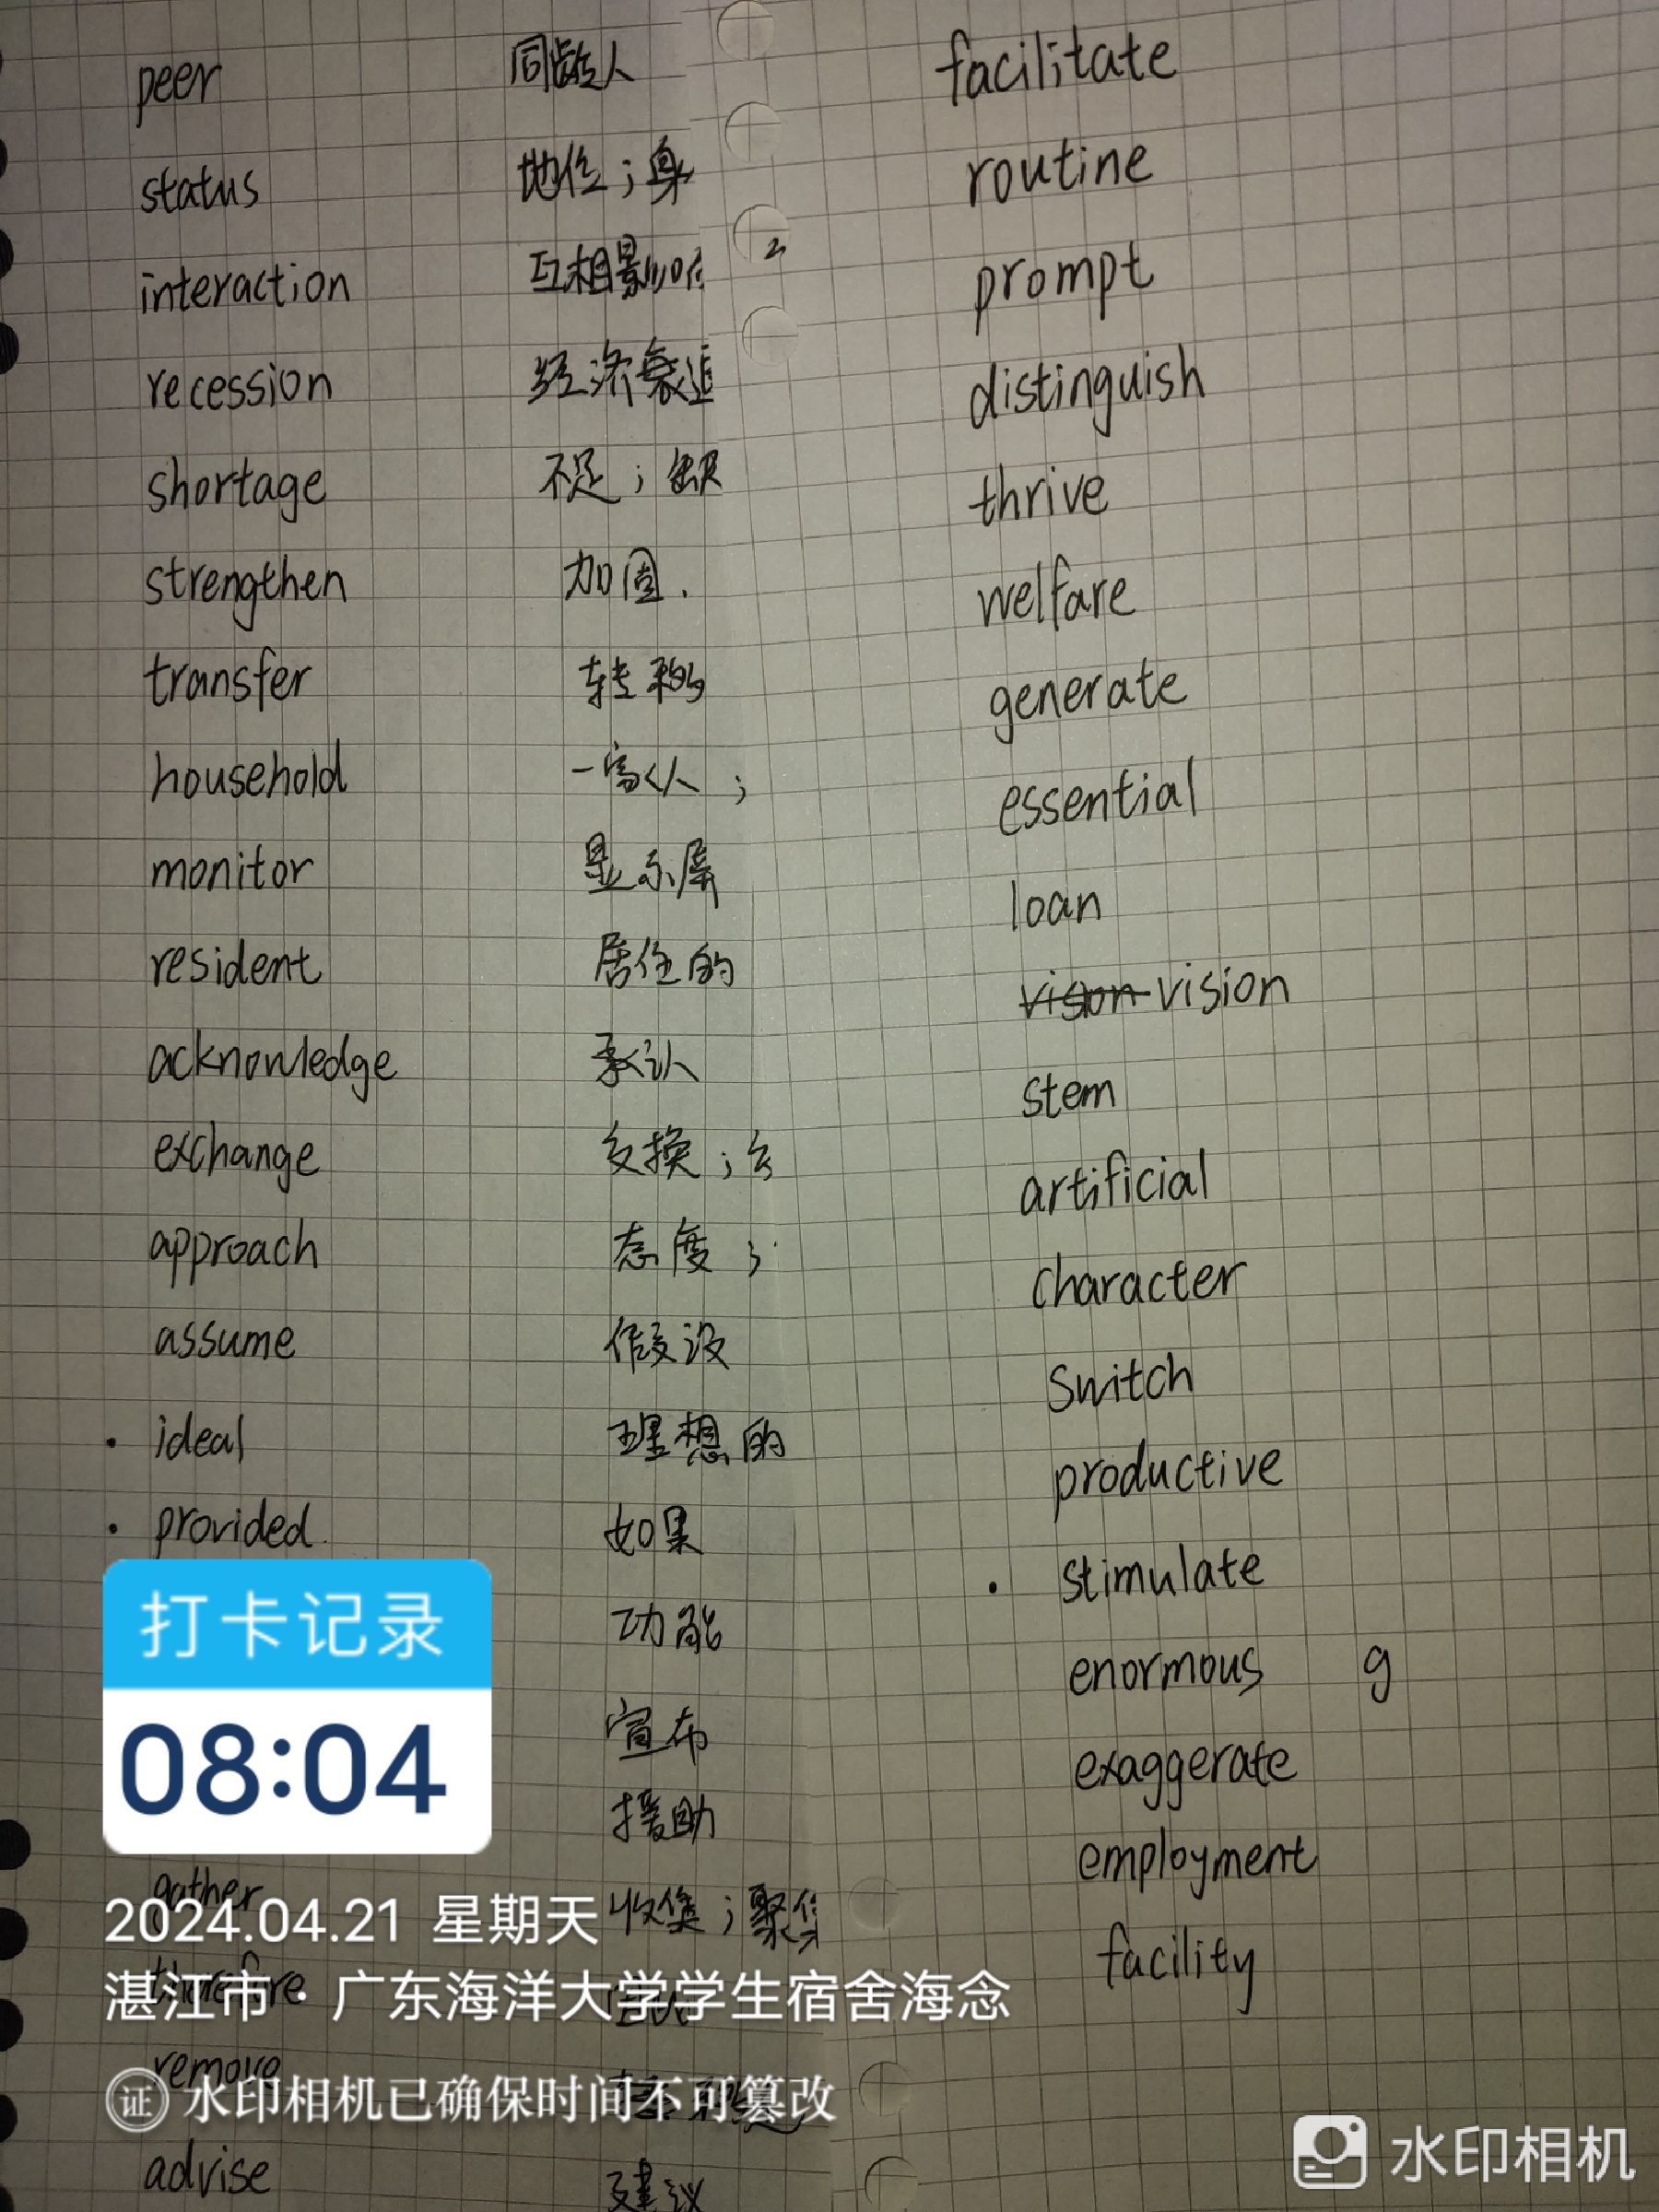 peer 同龄人
status 地位；身
interaction 互相影响
recession 经济衰退
shortage 不足；缺
strengthen 加固.
transfer 转移
household 一家人；
monitor 显示屏
resident 居住的
acknowledge 承认
exchange 交换；
approach 态度；
assume 假设
· ideal 理想的
· provided 如果
功能
宣布
援助
gather 收集；聚集
therefore
remove
advise 建议
facilitate
routine
prompt
distinguish
thrive
welfare
generate
essential
loan
vison vision
stem
artificial
character
switch
productive
· stimulate
enormous g
exaggerate
employment
facility
打卡记录
08:04
2024.04.21 星期天
湛江市·广东海洋大学学生宿舍海念
证 水印相机已确保时间不可篡改
水印相机